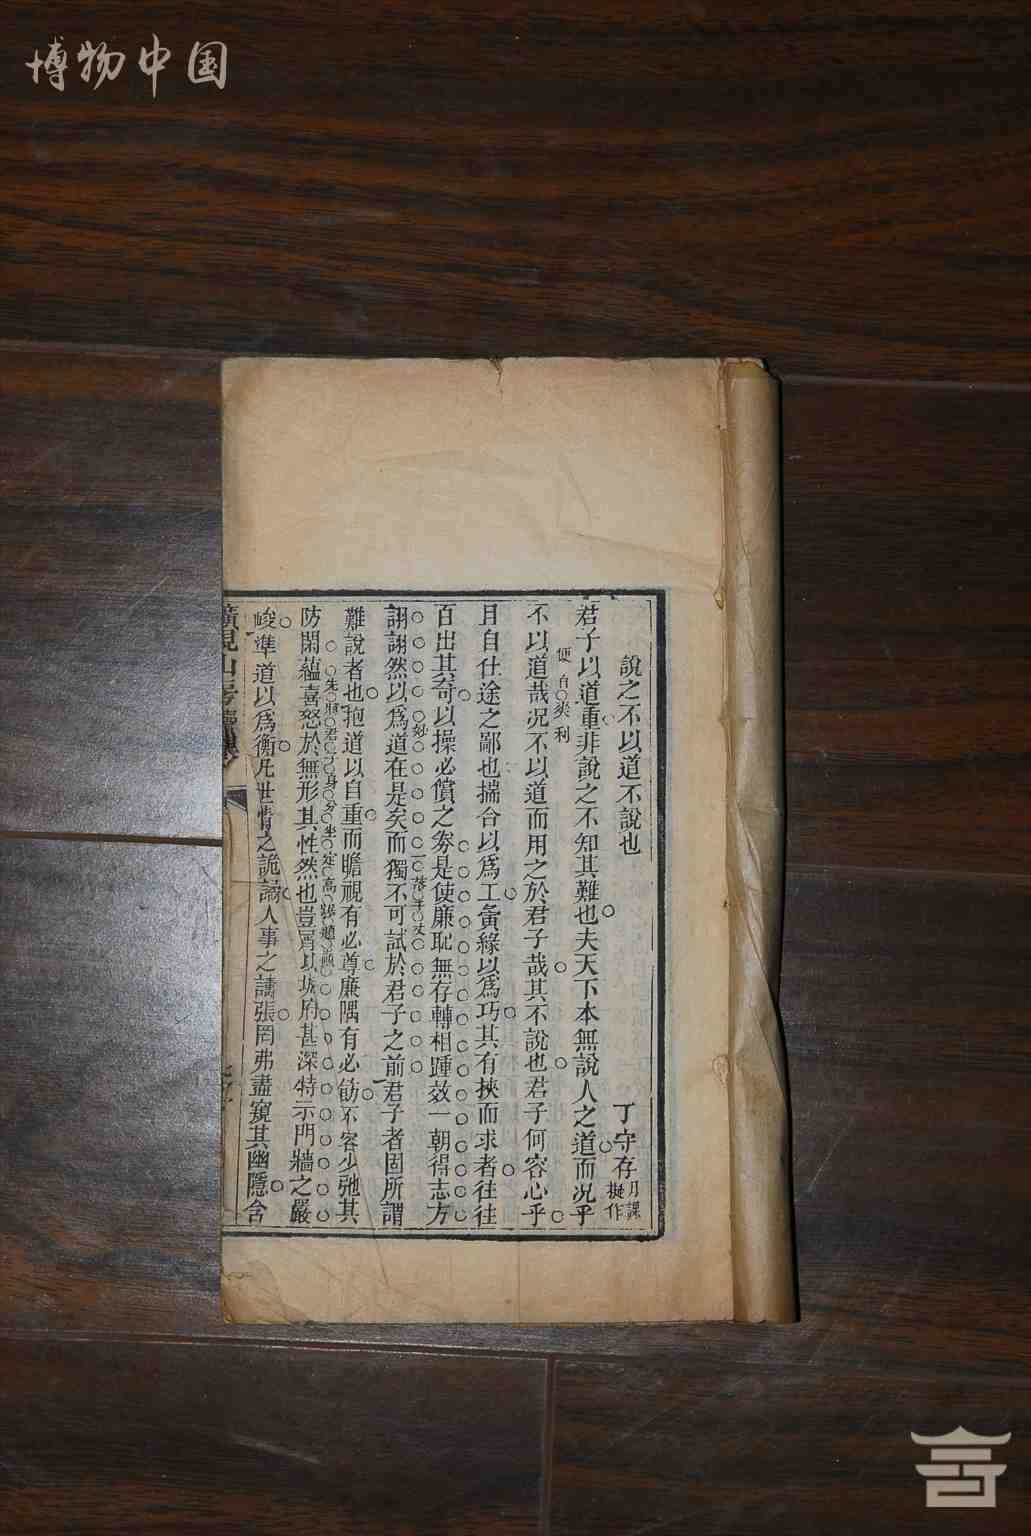 博物中国
說之不以道不說也
丁守存
月課
擬作
君子以道重非說之不知其難也夫天下本無說人之道而况乎
便自爽利
不以道哉况不以道而用之於君子哉其不說也君子何容心乎
且自仕途之鄙也揣合以爲工夤緣以爲巧其有挾而求者往往
百出其奇以操必償之劵是使廉耻無存轉相踵效一朝得志方
妙
一落千丈
詡詡然以爲道在是矣而獨不可試於君子之前君子者固所謂
難說者也抱道以自重而瞻視有必尊廉隅有必飭不容少弛其
先將君子身分坐定高踞題巔
防閑蘊喜怒於無形其性然也豈屑以城府甚深特示門牆之嚴
峻準道以爲衡凡世情之詭譎人事之譸張罔弗盡窺其幽隱含
曠視山房